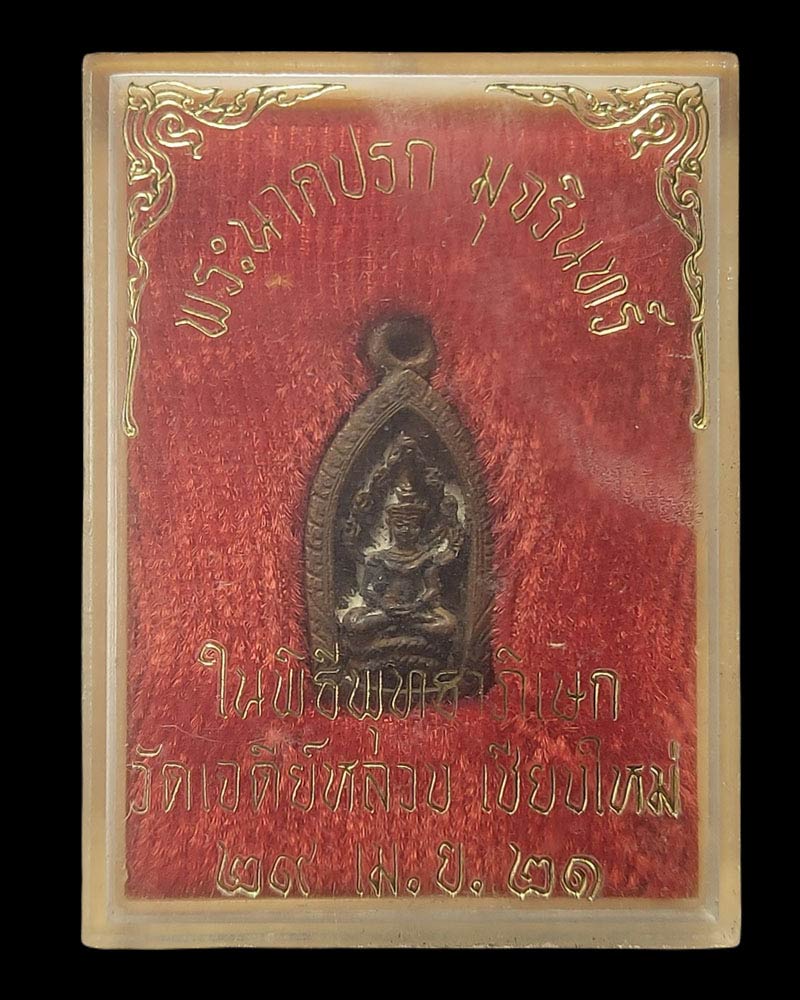 พระนาคปรก มุจรินทร์
ในพิธีพุทธาภิเษก
วัดเจดีย์หลวง เชียงใหม่
๒๙ เม.ย. ๒๑